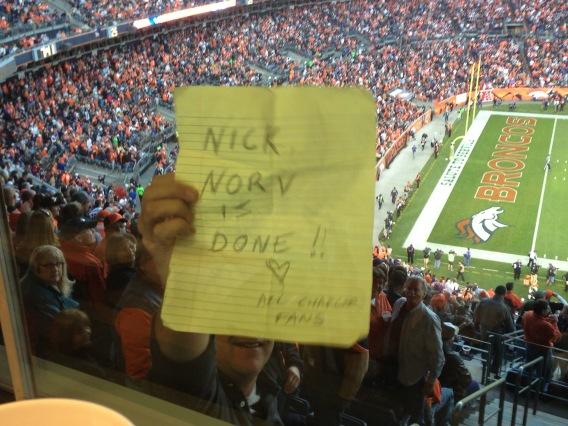 NICK
NORV
IS
DONE !!
♡
ALL CHARGER
FANS
BRONCOS